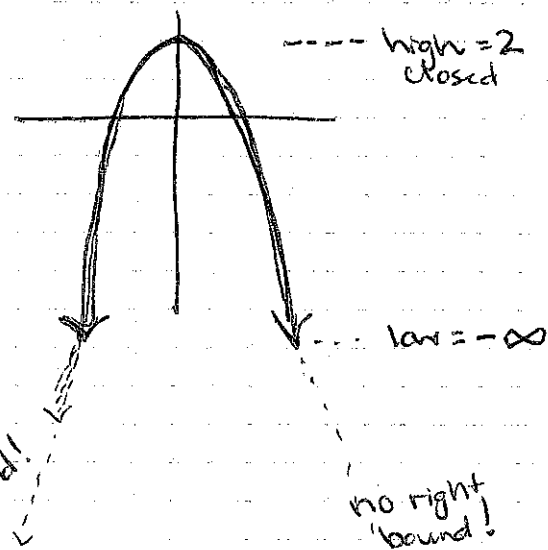 high = 2
closed
low = -∞
d!
no right
bound!